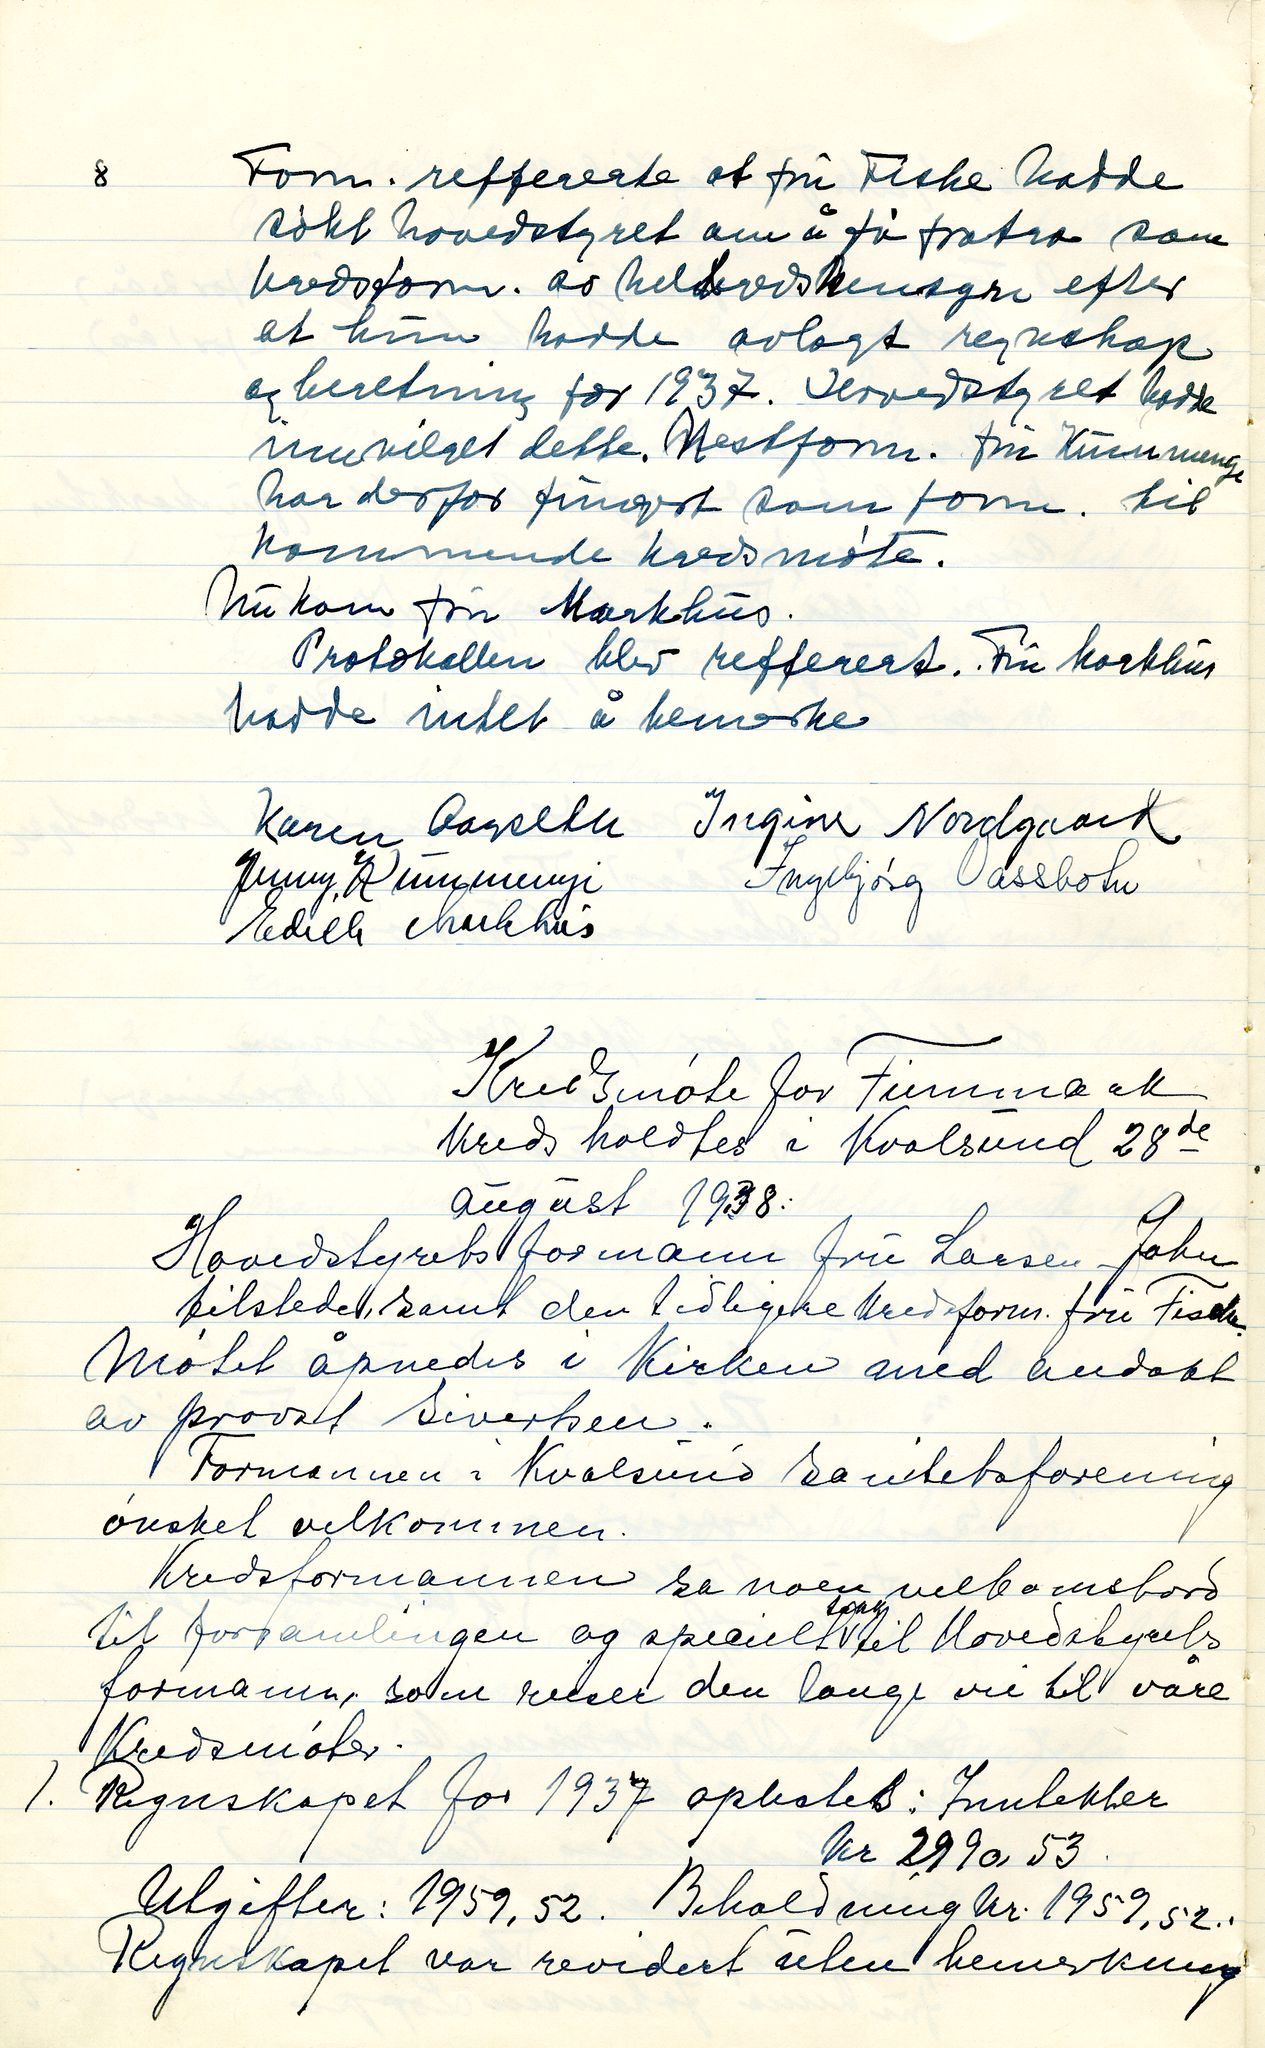 8 Form. reffererte at frü Fiske hadde
søkt hovedstyret om å få fratre som
kredsform. av helsedshensyn efter
at hün hadde avlagt regnskap
og beretning for 1937. Hovedstyret hadde
innvilget dette. Nestform. frü Kümmenje
har derfor füngert som form. til
kommende kredsmøte.
Nü kom frü Markhüs.
Protokollen blev refferert. Frü Markhüs
hadde intet å bemerke
Karen Ingine Nordgaard
Jenny Kümmenje Ingebjørg Vassbotn
Edith Markhüs
Kredsmøte for Finnmark
kreds holdtes i Kvalsünd 28de
aügüst 1938:
Hovedstyrets formann frü Larsen-Jahn
tilstede, samt den tidligere kredsform. frü Fiske.
Møtet åpnedes i Kirken med andakt
av provst Sivertsen.
Formannen i Kvalsünd Sanitetsforening
ønsket velkommen.
Kredsformannen sa noen velkomstord
til forsamlingen og specielt takk til Hovedstyrets
formann, som reiser den lange vei til våre
Kredsmøter.
1. Regnskapet for 1937 oplestes: Inntekter
kr 2990,53.
Utgifter: 1959,52. Beholdning kr. 1959,52.
Regnskapet var revidert üten bemerkning